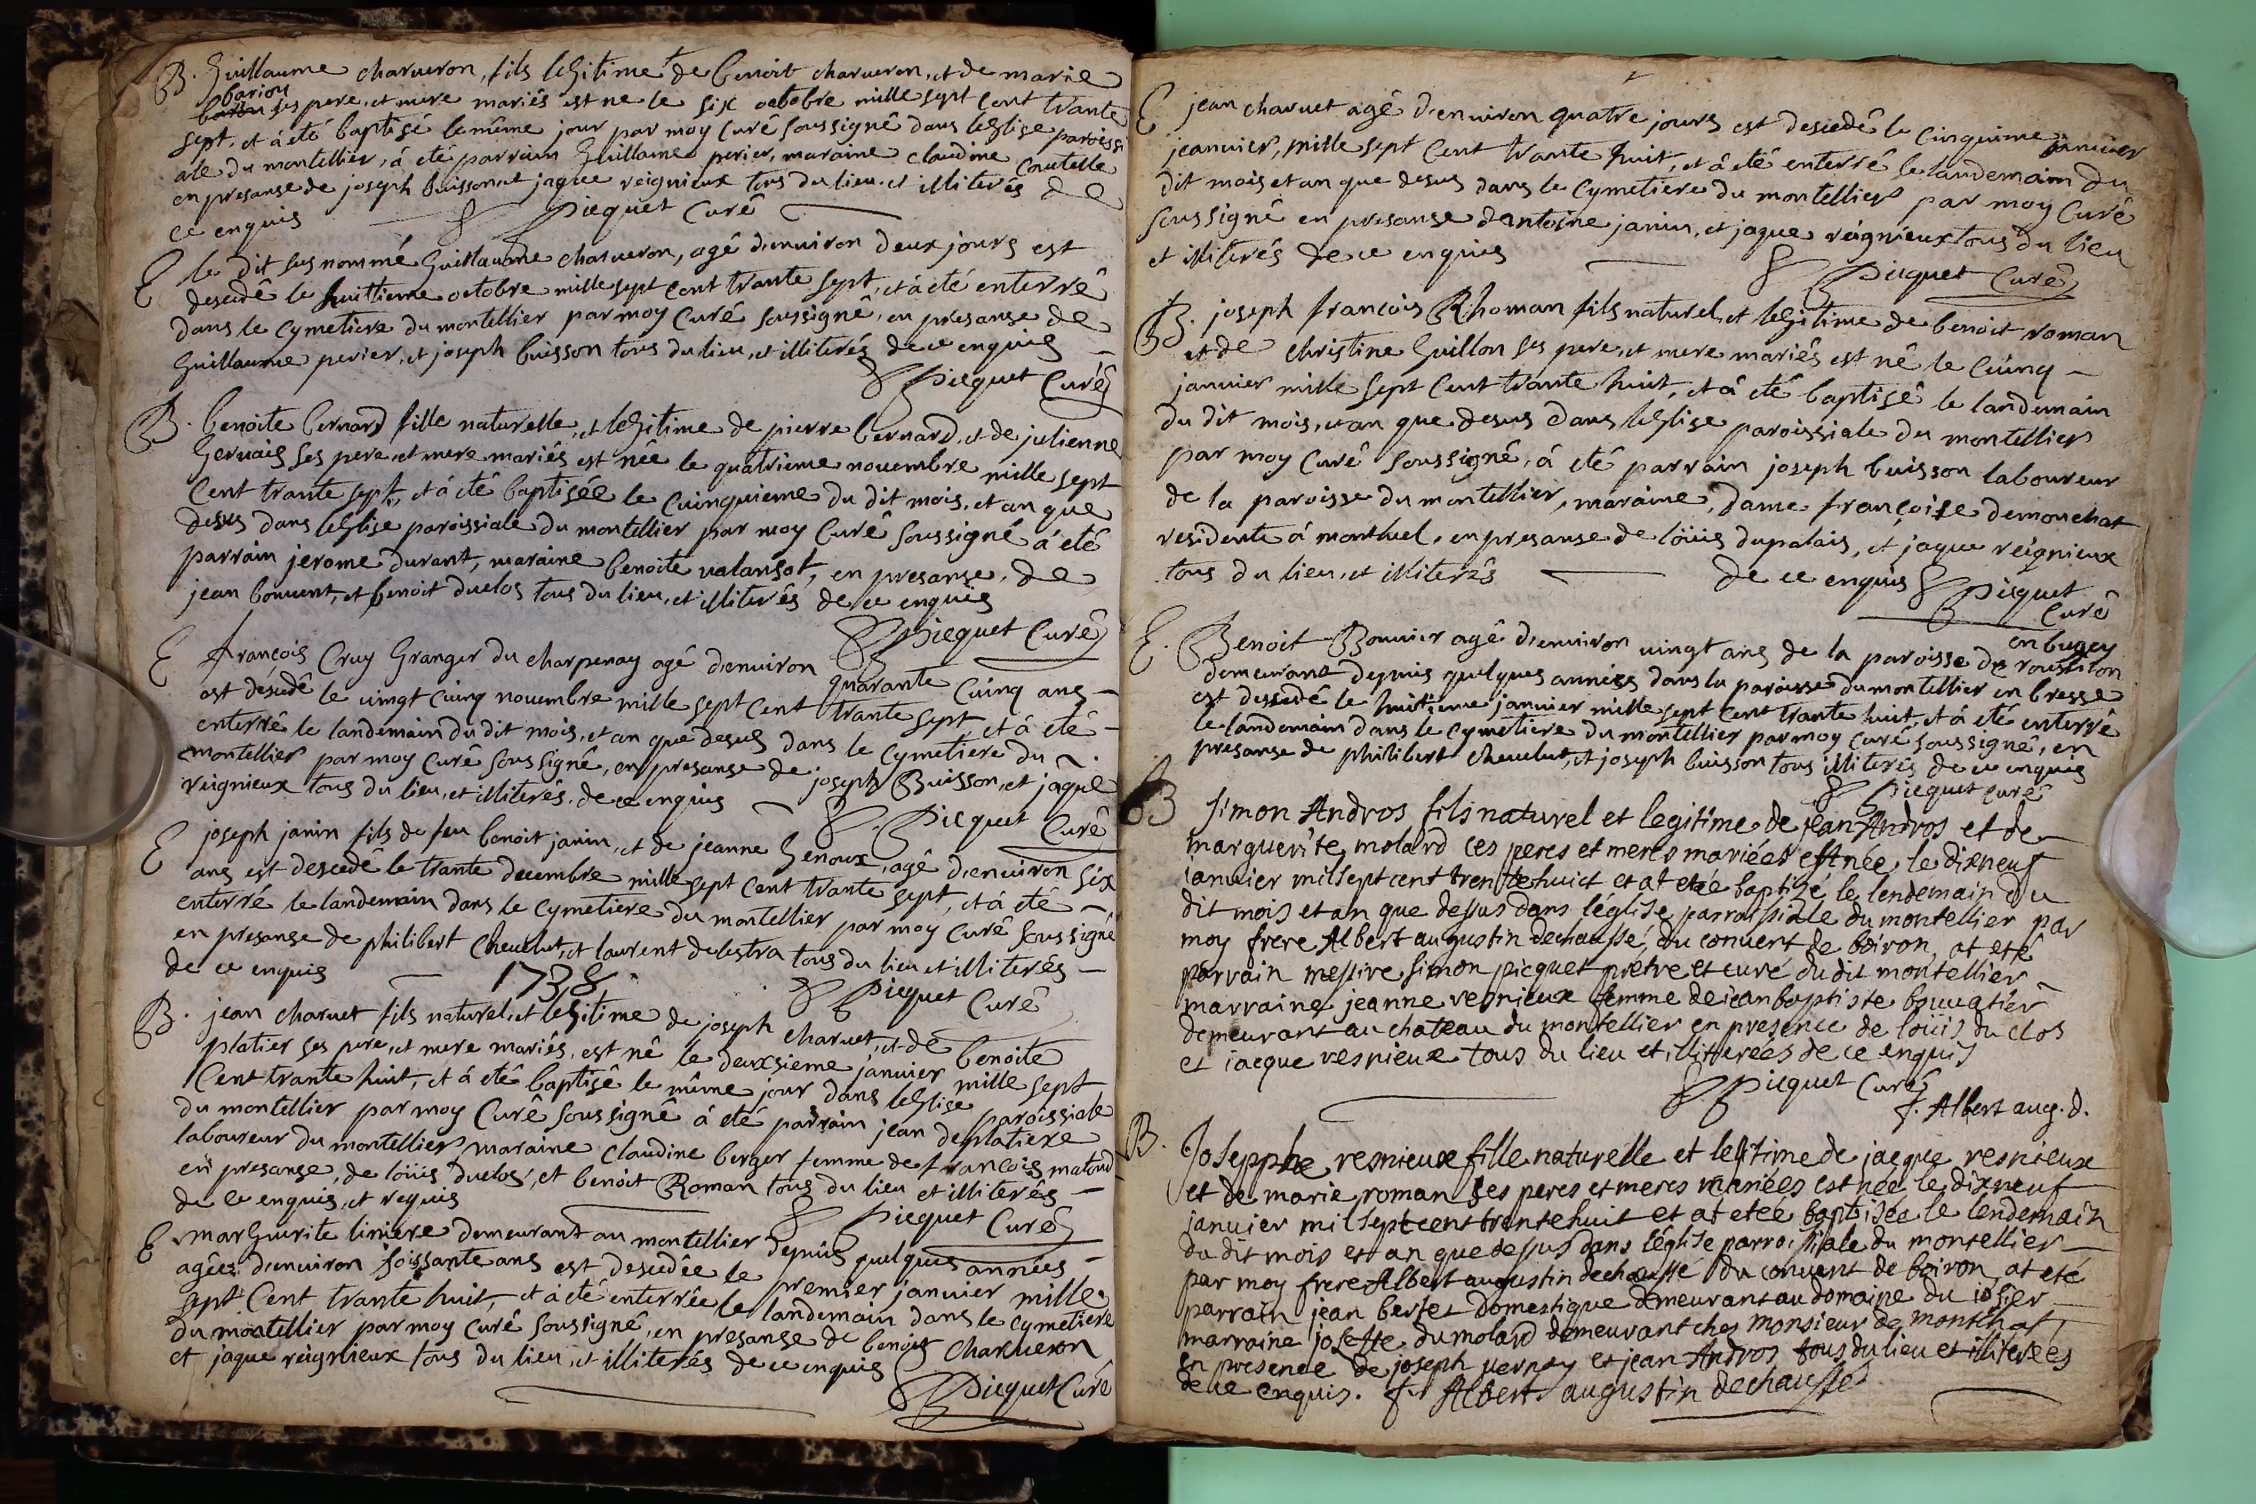 B. Guillaume charueron, fils legitime de benoit charueron, et de marie
barion
ses pere, et mere mariés est ne le six octobre mille sept cent trante
sept, et á eté baptisé le même jour par moy Curé soussigné dans leglise paroissi
ale du montellier, á eté parrain Guillaume perier, maraine claudine Coutelle
en presanse de joseph buisson et jaque reignieux tous du lieu, et illiterés de
ce enquis
Picquet Curé
E le dit susnommé Guillaume charueron, agé denuiron deux jours est
desedé le huittieme octobre mille sept cent trante sept, et á eté enterré
dans le Cymetiere du montellier par moy Curé soussigné, en presanse de
Guillaume perier, et joseph buisson tous du lieu, et illiterés de ce enquis
Picquet Curé
B. benoite bernard fille naturelle, et legitime de pierre bernard, et de julienne
Geruais ses pere, et mere mariés est née le quatrieme nouembre mille sept
Cent trante sept, et á eté baptisée le Cuinquieme du dit mois, et an que
desus dans leglise paroissiale du montellier par moy Curé soussigné á eté
parrain jerome durant, maraine benoite valansot, en presanse, de
jean bouuent, et benoit duclos tous du lieu, et illiterés de ce enquis
Picquet Curé
E françois Cruy Granger du charpenay agé denuiron quarante Cuinq ans
est désedé le uingt cuinq nouembre mille sept cent trante sept, et á eté
enterré le landemain du dit mois, et an que desus dans le Cymetiere du
montellier par moy Curé soussigné, en presanse de joseph Buisson, et jaque
reignieux tous du lieu, et illiterés, de ce enquis
Picquet Curé
E joseph janin fils de feu benoit janin, et de jeanne Genoux, agé denuiron six
ans est desedé le trante decembre mille sept cent trante sept, et á eté
enterré le landemain dans le Cymetiere du montellier par moy Curé soussigné
en presanse de philibert Cheuelut, et laurent delestra tous du lieu et illiterés
de ce enquis
Picquet Curé
1738
B. jean charuet fils naturel, et legitime de joseph charuet, et de benoite
platier ses pere, et mere mariés, est né le deuxsieme januier mille sept
Cent trante huit, et á eté baptisé le même jour dans leglise paroissiale
du montellier par moy Curé soussigné á eté parrain jean deplatiere
laboureur du montellier, maraine Claudine berger femme de françois matond
en presanse, de löüis duclos, et benoit Roman tous du lieu et illiterés
de ce enquis, et requis
Picquet Curé
E marguerite liniere demeurant au montellier depuis quelques années
agée denuiron soissante ans est desedée le premier januier mille
sept Cent trante huit, et á eté enterrée le landemain dans le cymetiere
du montellier par moy Curé soussigné, en presanse de benoit charueron
et jaque reignieux tous du lieu, et illiterés de ce enquis
Picquet Curé
E jean charuet agé denuiron quatre jours est desedé le Cinquime januier
jeanuier, mille sept Cent trante huit, et á eté enterré le landemain du
dit mois et an que desus dans le Cymetiere du montellier par moy Curé
soussigné en presanse dantoine janin, et jaque reignieux tous du lieu
et illiterés de ce enquis
Picquet Curé
B. joseph françois Rhoman fils naturel, et legitime de benoit roman
et de christine Guillon ses pere, et mere mariés est né le Cuinq
januier mille sept Cent trante huit, et á eté baptisé le landemain
du dit mois, et an que desus dans leglise paroissiale du montellier
par moy Curé soussigné, á eté parrain joseph buisson laboureur
de la paroisse du montellier, maraine, dame françoise demonchat
residente á montluel, en presanse de löüis dupalais, et jaque reignieux
tous du lieu, et illiterés de ce enquis
Picquet
Curé
en bugey
E. Benoit Bouuier agé denuiron uingt ans de la paroisse de rousillon
demeurant depuis quelques années dans la paroisse du montellier en bresse
est desedé le huitieme januier mille sept cent trante huit, et á eté enterré
le landemain dans le Cymetiere du montellier par moy Curé soussigné, en
presanse de philibert cheuelut, et joseph buisson tous illiterés de ce enquis
Picquet Curé
B simon Andros fils naturel et legitime de jean Andros et de
marguerite molard ces peres et meres mariées est née le dixneuf
ianuier mil sept cent trentehuict et at etée baptizé le lendemain du
dit mois et an que dessus dans l'église parroissiale du montellier par
moy frere Albert augustin dechaussé du conuent de boiron, at eté
parrain messire simon picquet prétre et curé du dit montellier
marraine jeanne resnieux femme de iean baptiste bouuatier
demeurant au chateau du montellier en presence de loüis du clos
et iacque resnieux tous du lieu et illitterées de ce enquis
Picquet Curé
f. Albert aug. d.
B. Josepphe resnieux fille naturelle et legitime de jacque resnieux
et de marie roman ses peres et meres mariées est née le dixneuf
januier mil sept cent trente huit et at etée baptisée le lendemain
du dit mois et an que dessus dans l'église parroissiale du montellier
par moy frere Albert augustin dechaussé du conuent de boiron, at eté
parrain jean bertet domestique demeurant au domaine du
marraine josette dumolard demeurant ches monsieur de montchat
en presence de joseph uernay et jean Andros tous du lieu et illiterees
de ce enquis. fr Albert augustin dechaussé